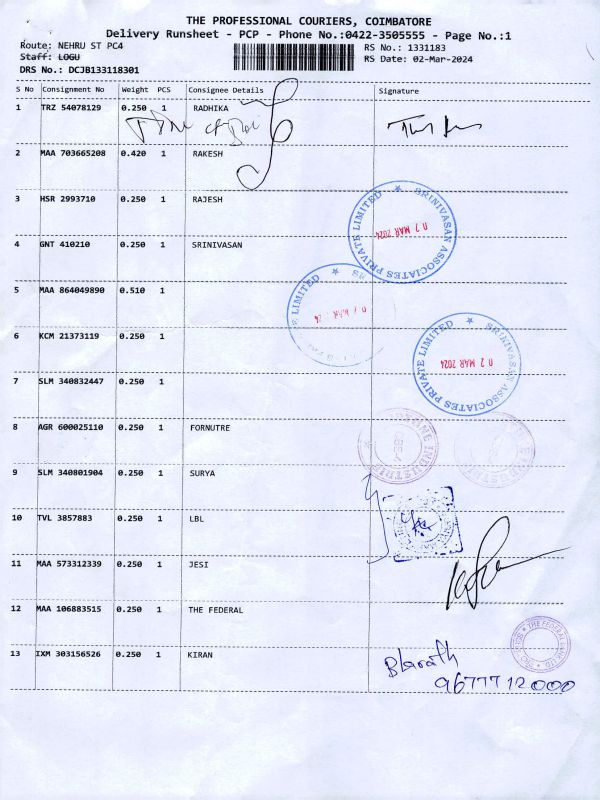 THE PROFESSIONAL COURIERS, COIMBATORE
Delivery Runsheet - PCP - Phone No.:0422-3505555 - Page No.:1
Route: NEHRU ST PC4
RS No.: 1331183
Staff: LOGU
RS Date: 02-Mar-2024
DRS No.: DCJB133118301
S No Consignment No Weight PCS Consignee Details Signature
1 TRZ 54078129 0.250 1 RADHIKA
2 MAA 703665208 0.420 1 RAKESH
3 HSR 2993710 0.250 1 RAJESH
SRINIVASAN ASSOCIATES PRIVATE LIMITED
02 MAR 2024
4 GNT 410210 0.250 1 SRINIVASAN
5 MAA 864049890 0.510 1
LIMITED
6 KCM 21373119 0.250 1
SRINIVASAN ASSOCIATES PRIVATE LIMITED
02 MAR 2024
7 SLM 340832447 0.250 1
8 AGR 600025110 0.250 1 FORNUTRE
9 SLM 340801904 0.250 1 SURYA
10 TVL 3857883 0.250 1 LBL
11 MAA 573312339 0.250 1 JESI
12 MAA 106883515 0.250 1 THE FEDERAL
THE FEDERAL BANK LTD.
13 IXM 303156526 0.250 1 KIRAN
Bharath
9677712000